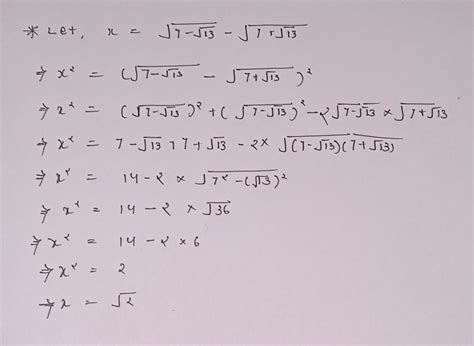 * Let, x = √(7-√13) - √(7+√13)
⇒ x² = (√(7-√13) - √(7+√13))²
⇒ x² = (√(7-√13))² + (√(7-√13))² - 2√(7-√13) × √(7+√13)
⇒ x² = 7-√13 + 7+√13 - 2× √((7-√13)(7+√13))
⇒ x² = 14-2 × √(7²-(√13)²)
⇒ x² = 14-2 × √36
⇒ x² = 14-2×6
⇒ x² = 2
⇒ x = √2